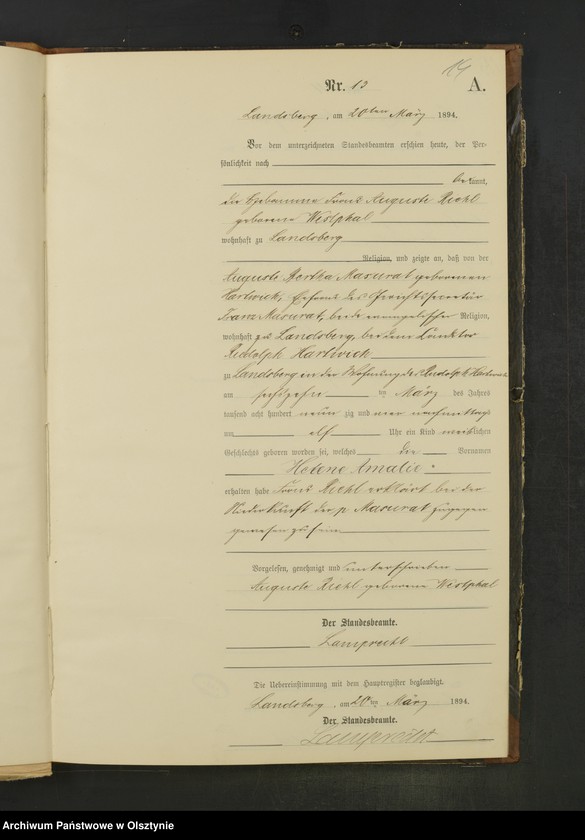 14
Nr. 13 A.
Landsberg, am 20ten März 1894.
Vor dem unterzeichneten Standesbeamten erschien heute, der Per-
sönlichkeit nach
bekannt,
die Hebamme Frau Auguste Riehl
geborene Westphal
wohnhaft zu Landsberg
Religion, und zeigte an, daß von der
Auguste Bertha Masurat geborenen
Hartwick, Ehefrau des Gerichtssecretär
Franz Masurat, beide evangelischer Religion,
wohnhaft zu Landsberg, bei dem
Rudolph Hartwick
zu Landsberg in der Wohnung des Rudolph Hartwick
am sechszehn ten März des Jahres
tausend acht hundert neun zig und vier nachmittags
um elf Uhr ein Kind weiblichen
Geschlechts geboren worden sei, welches die Vornamen
Helene Amalie
erhalten habe Frau Riehl erklärt bei der
Niederkunft der p. Masurat zugegen
gewesen zu sein
Vorgelesen, genehmigt und unterschrieben
Auguste Riehl geborene Westphal
Der Standesbeamte.
Lamprecht
Die Uebereinstimmung mit dem Hauptregister beglaubigt.
Landsberg, am 20ten März 1894.
Der Standesbeamte.
Lamprecht
Archiwum Państwowe w Olsztynie